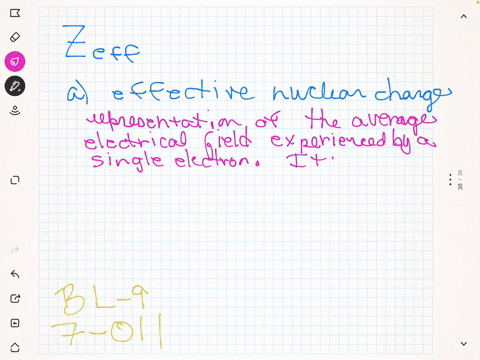 Zeff
a) effective nuclear charge
representation of the average
electrical field experienced by a
single electron. It.
BL-9
7-011
38 / 38